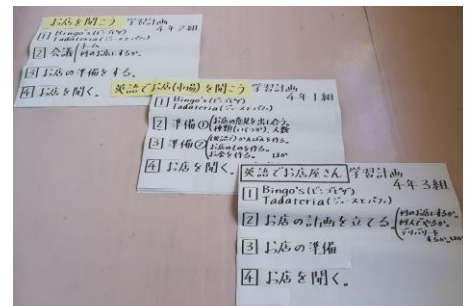 お店を開こう 学習計画
4年2組
1 Bingo's(ビンゴピザ)
Tadateria(ジュースとパフェ)
2 会議
何のお店にするか。
3 お店の準備をする。
4 お店を開く。
英語でお店(市場)を開こう 学習計画
4年1組
1 Bingo's(ビンゴピザ)
Tadateria(ジュースとパフェ)
2 準備① お店の意見を出し合う。
種類(いくつか)、人数
3 準備② (英語)かんばんを作る。
お店のものを作る。
お金を作る。 ほか
4 お店を開く。
英語でお店屋さん 学習計画
4年3組
1 Bingo's(ビンゴピザ)
Tadateria(ジュースとパフェ)
2 お店の計画を立てる。
何のお店にするか。
何人でやるか。
デリバリーをするか。ほか
3 お店の準備
4 お店を開く。